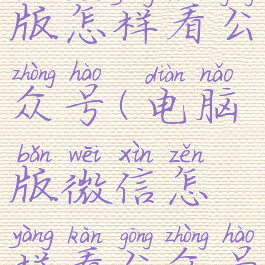 版怎样看公
zhòng hào diàn nǎo
众号(电脑
bǎn wēi xìn zěn
版微信怎
yàng kàn gōng zhòng hào
样看公众号